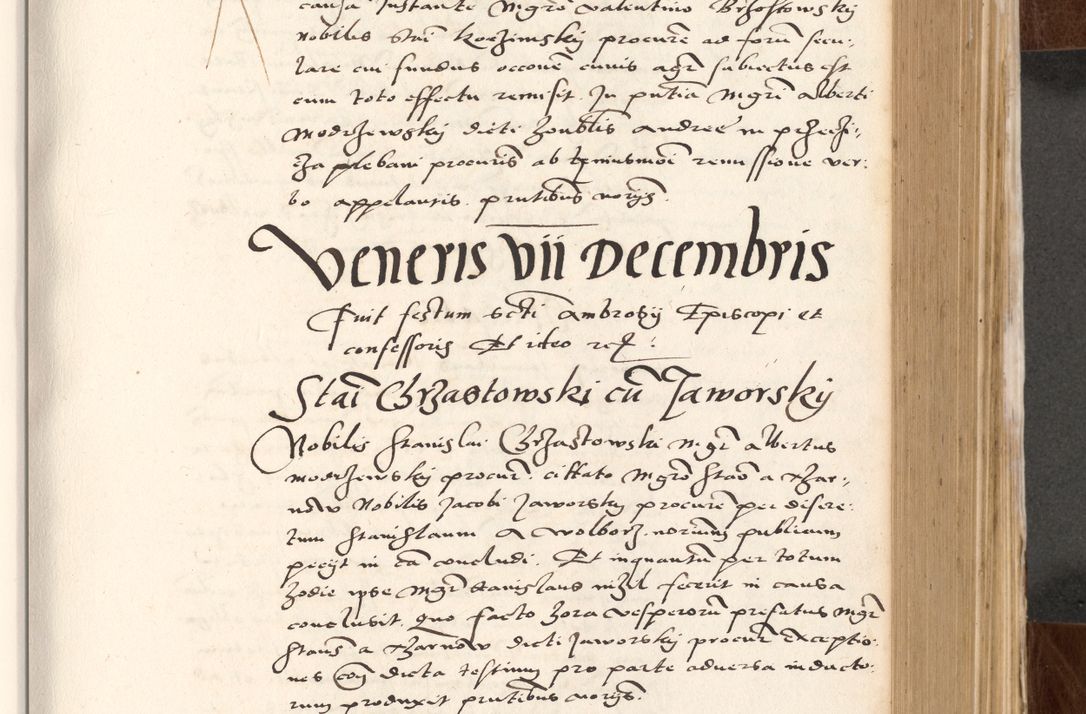 causa Instante Mgro Valentino Brzostowskj
Nobilis Stai Kozimskj procure ad forum secu-
lare cui fundus occone cuius agr subiectus est
cum toto effectu remisit. In pntia Mgri Alberti
Modrzewskij dicti honblis Andree in przeczi-
cza plebani procuris ab hmusmoi remissione ver-
bo appelantis. pntibus notijs.
Veneris vii Decembris
Fuit festum scti Ambrosij Episcopi et
confessoris Et ideo
Stai Chrzastowski cu Jaworskij
Nobilis Stanislai Chrzastowski Mgr Albertus
Modrzewskij procur. cittato Mgro Stao a Czar-
now Nobilis Jacobi Jaworskij procure per discre-
tum Stanislaum a Wolborz. notarium publicum
pecijt in ca concludi. Et inquantu per totum
hodie ipse Mgr Stanislaus nihil fecerit in causa
conclusit. Quo facto hora vesperoru prefatus Mgr
Staus a Czarnow dicti Jaworskij procur Exceptio-
nes con dicta testium pro parte adversa inducto-
rum produxit pntibus notijs.